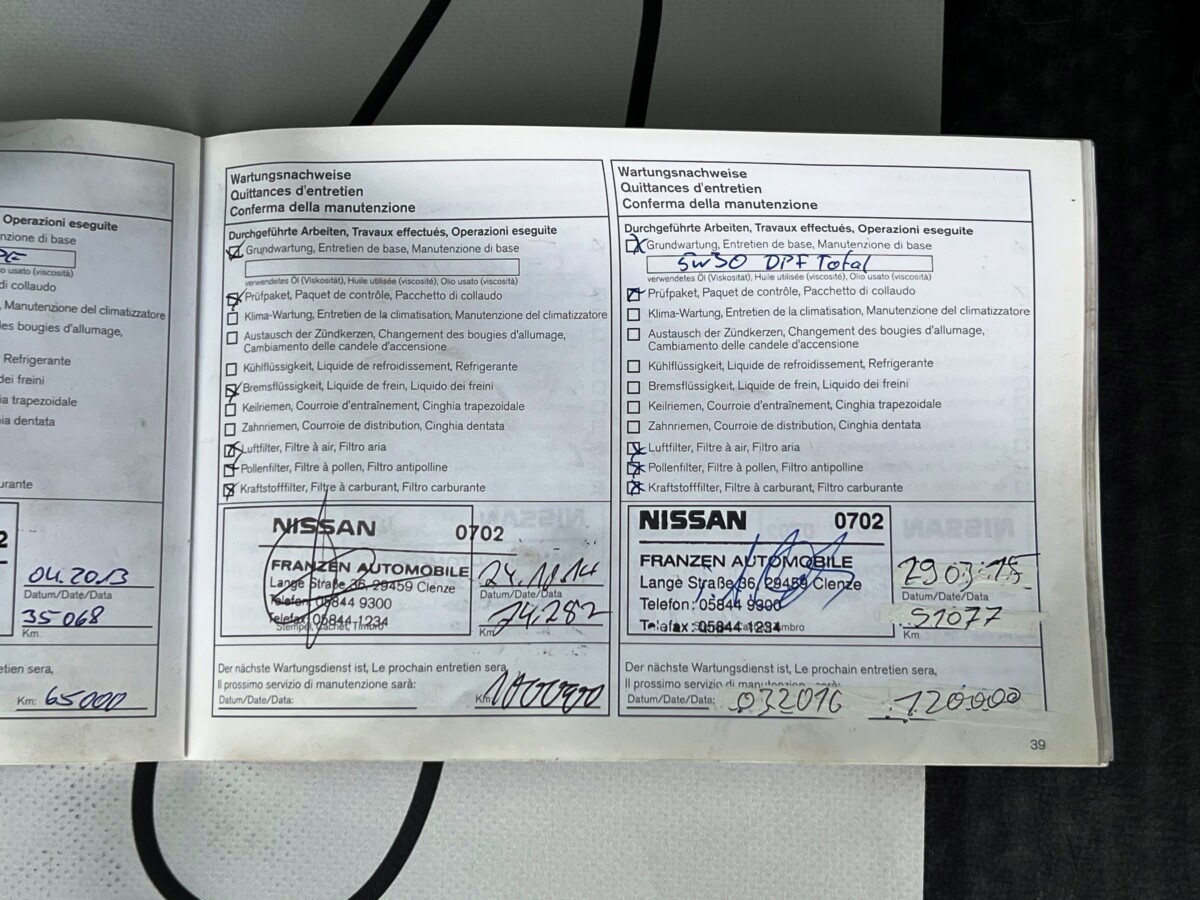 Operazioni eseguite
nzione di base
io usato (viscosità)
di collaudo
, Manutenzione del climatizzatore
es bougies d'allumage,
Refrigerante
dei freini
ia trapezoidale
hia dentata
urante
2
04.2013
Datum/Date/Data
35068
Km
etien sera,
Km: 65000
Wartungsnachweise
Quittances d'entretien
Conferma della manutenzione
Durchgeführte Arbeiten, Travaux effectués, Operazioni eseguite
Grundwartung, Entretien de base, Manutenzione di base
verwendetes Öl (Viskosität), Huile utilisée (viscosité), Olio usato (viscosità)
Prüfpaket, Paquet de contrôle, Pacchetto di collaudo
Klima-Wartung, Entretien de la climatisation, Manutenzione del climatizzatore
Austausch der Zündkerzen, Changement des bougies d'allumage,
Cambiamento delle candele d'accensione
Kühlflüssigkeit, Liquide de refroidissement, Refrigerante
Bremsflüssigkeit, Liquide de frein, Liquido dei freini
Keilriemen, Courroie d'entraînement, Cinghia trapezoidale
Zahnriemen, Courroie de distribution, Cinghia dentata
Luftfilter, Filtre à air, Filtro aria
Pollenfilter, Filtre à pollen, Filtro antipolline
Kraftstofffilter, Filtre à carburant, Filtro carburante
NISSAN 0702
FRANZEN AUTOMOBILE
Lange Straße 36, 29459 Clenze
Telefon: 05844 9300
Telefax: 05844 1234
Stempel, Cachet, Timbro
24.11.14
Datum/Date/Data
74.282
Km
Der nächste Wartungsdienst ist, Le prochain entretien sera,
Il prossimo servizio di manutenzione sarà:
Datum/Date/Data:
Km
Wartungsnachweise
Quittances d'entretien
Conferma della manutenzione
Durchgeführte Arbeiten, Travaux effectués, Operazioni eseguite
Grundwartung, Entretien de base, Manutenzione di base
5W30 DPF Total
verwendetes Öl (Viskosität), Huile utilisée (viscosité), Olio usato (viscosità)
Prüfpaket, Paquet de contrôle, Pacchetto di collaudo
Klima-Wartung, Entretien de la climatisation, Manutenzione del climatizzatore
Austausch der Zündkerzen, Changement des bougies d'allumage,
Cambiamento delle candele d'accensione
Kühlflüssigkeit, Liquide de refroidissement, Refrigerante
Bremsflüssigkeit, Liquide de frein, Liquido dei freini
Keilriemen, Courroie d'entraînement, Cinghia trapezoidale
Zahnriemen, Courroie de distribution, Cinghia dentata
Luftfilter, Filtre à air, Filtro aria
Pollenfilter, Filtre à pollen, Filtro antipolline
Kraftstofffilter, Filtre à carburant, Filtro carburante
NISSAN 0702
FRANZEN AUTOMOBILE
Lange Straße 36, 29459 Clenze
Telefon: 05844 9300
Telefax: 05844 1234
29.03.15
Datum/Date/Data
91077
Km
Der nächste Wartungsdienst ist, Le prochain entretien sera,
Il prossimo servizio di manutenzione sarà:
Datum/Date/Data: 032016 120000
39